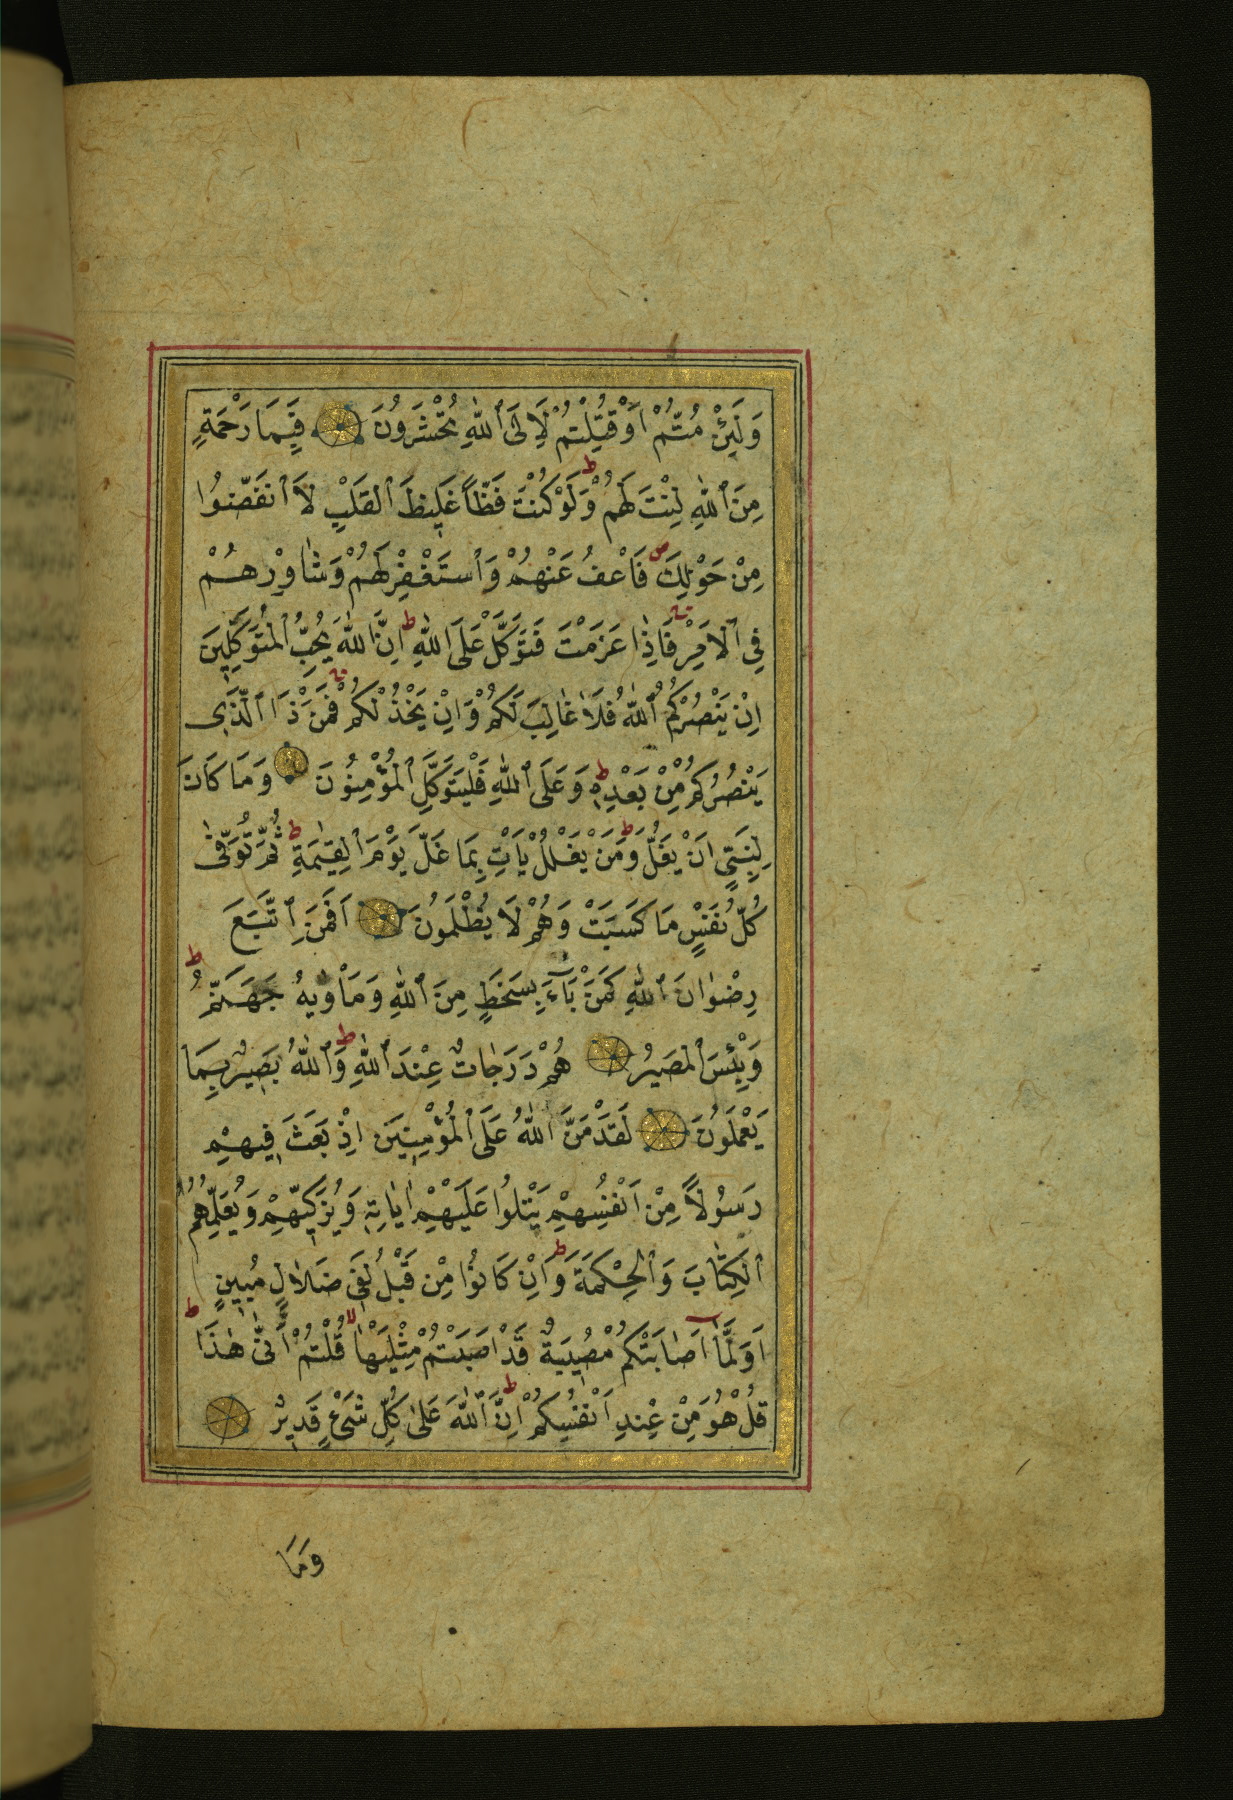 وَلَئِنْ مُتُّمْ اَوْ قُتِلْتُمْ لَاِلَى ٱللّٰهِ تُحْشَرُونَ فَبِمَا رَحْمَةٍ
مِنَ ٱللّٰهِ لِنْتَ لَهُمْ ط وَلَوْ كُنْتَ فَظًّا غَلِيظَ ٱلْقَلْبِ لَا ٱنْفَضُّوا
مِنْ حَوْلِكَ ص فَاعْفُ عَنْهُمْ وَٱسْتَغْفِرْ لَهُمْ وَشَاوِرْهُمْ
فِي ٱلْاَمْرِ فَاِذَا عَزَمْتَ فَتَوَكَّلْ عَلَى ٱللّٰهِ ط اِنَّ ٱللّٰهَ يُحِبُّ ٱلْمُتَوَكِّلِينَ
اِنْ يَنْصُرْكُمُ ٱللّٰهُ فَلَا غَالِبَ لَكُمْ وَاِنْ يَخْذُلْكُمْ فَمَنْ ذَا ٱلَّذِي
يَنْصُرُكُمْ مِنْ بَعْدِهِ ط وَعَلَى ٱللّٰهِ فَلْيَتَوَكَّلِ ٱلْمُؤْمِنُونَ وَمَا كَانَ
لِنَبِيٍّ اَنْ يَغُلَّ ط وَمَنْ يَغْلُلْ يَاْتِ بِمَا غَلَّ يَوْمَ ٱلْقِيٰمَةِ ط ثُمَّ تُوَفّٰى
كُلُّ نَفْسٍ مَا كَسَبَتْ وَهُمْ لَا يُظْلَمُونَ اَفَمَنِ ٱتَّبَعَ
رِضْوَانَ ٱللّٰهِ كَمَنْ بَآءَ بِسَخَطٍ مِنَ ٱللّٰهِ وَمَاْوٰيهُ جَهَنَّمُ ط
وَبِئْسَ ٱلْمَصِيرُ هُمْ دَرَجَاتٌ عِنْدَ ٱللّٰهِ ط وَٱللّٰهُ بَصِيرٌ بِمَا
يَعْمَلُونَ لَقَدْ مَنَّ ٱللّٰهُ عَلَى ٱلْمُؤْمِنِينَ اِذْ بَعَثَ فِيهِمْ
رَسُولًا مِنْ اَنْفُسِهِمْ يَتْلُوا عَلَيْهِمْ اٰيَاتِهِ وَيُزَكِّيهِمْ وَيُعَلِّمُهُمُ
ٱلْكِتَابَ وَٱلْحِكْمَةَ ط وَاِنْ كَانُوا مِنْ قَبْلُ لَفِي ضَلَالٍ مُبِينٍ
اَوَلَمَّا اَصَابَتْكُمْ مُصِيبَةٌ قَدْ اَصَبْتُمْ مِثْلَيْهَا لا قُلْتُمْ اَنّٰى هٰذَا ط
قُلْ هُوَ مِنْ عِنْدِ اَنْفُسِكُمْ ط اِنَّ ٱللّٰهَ عَلٰى كُلِّ شَيْءٍ قَدِيرٌ
وَمَا